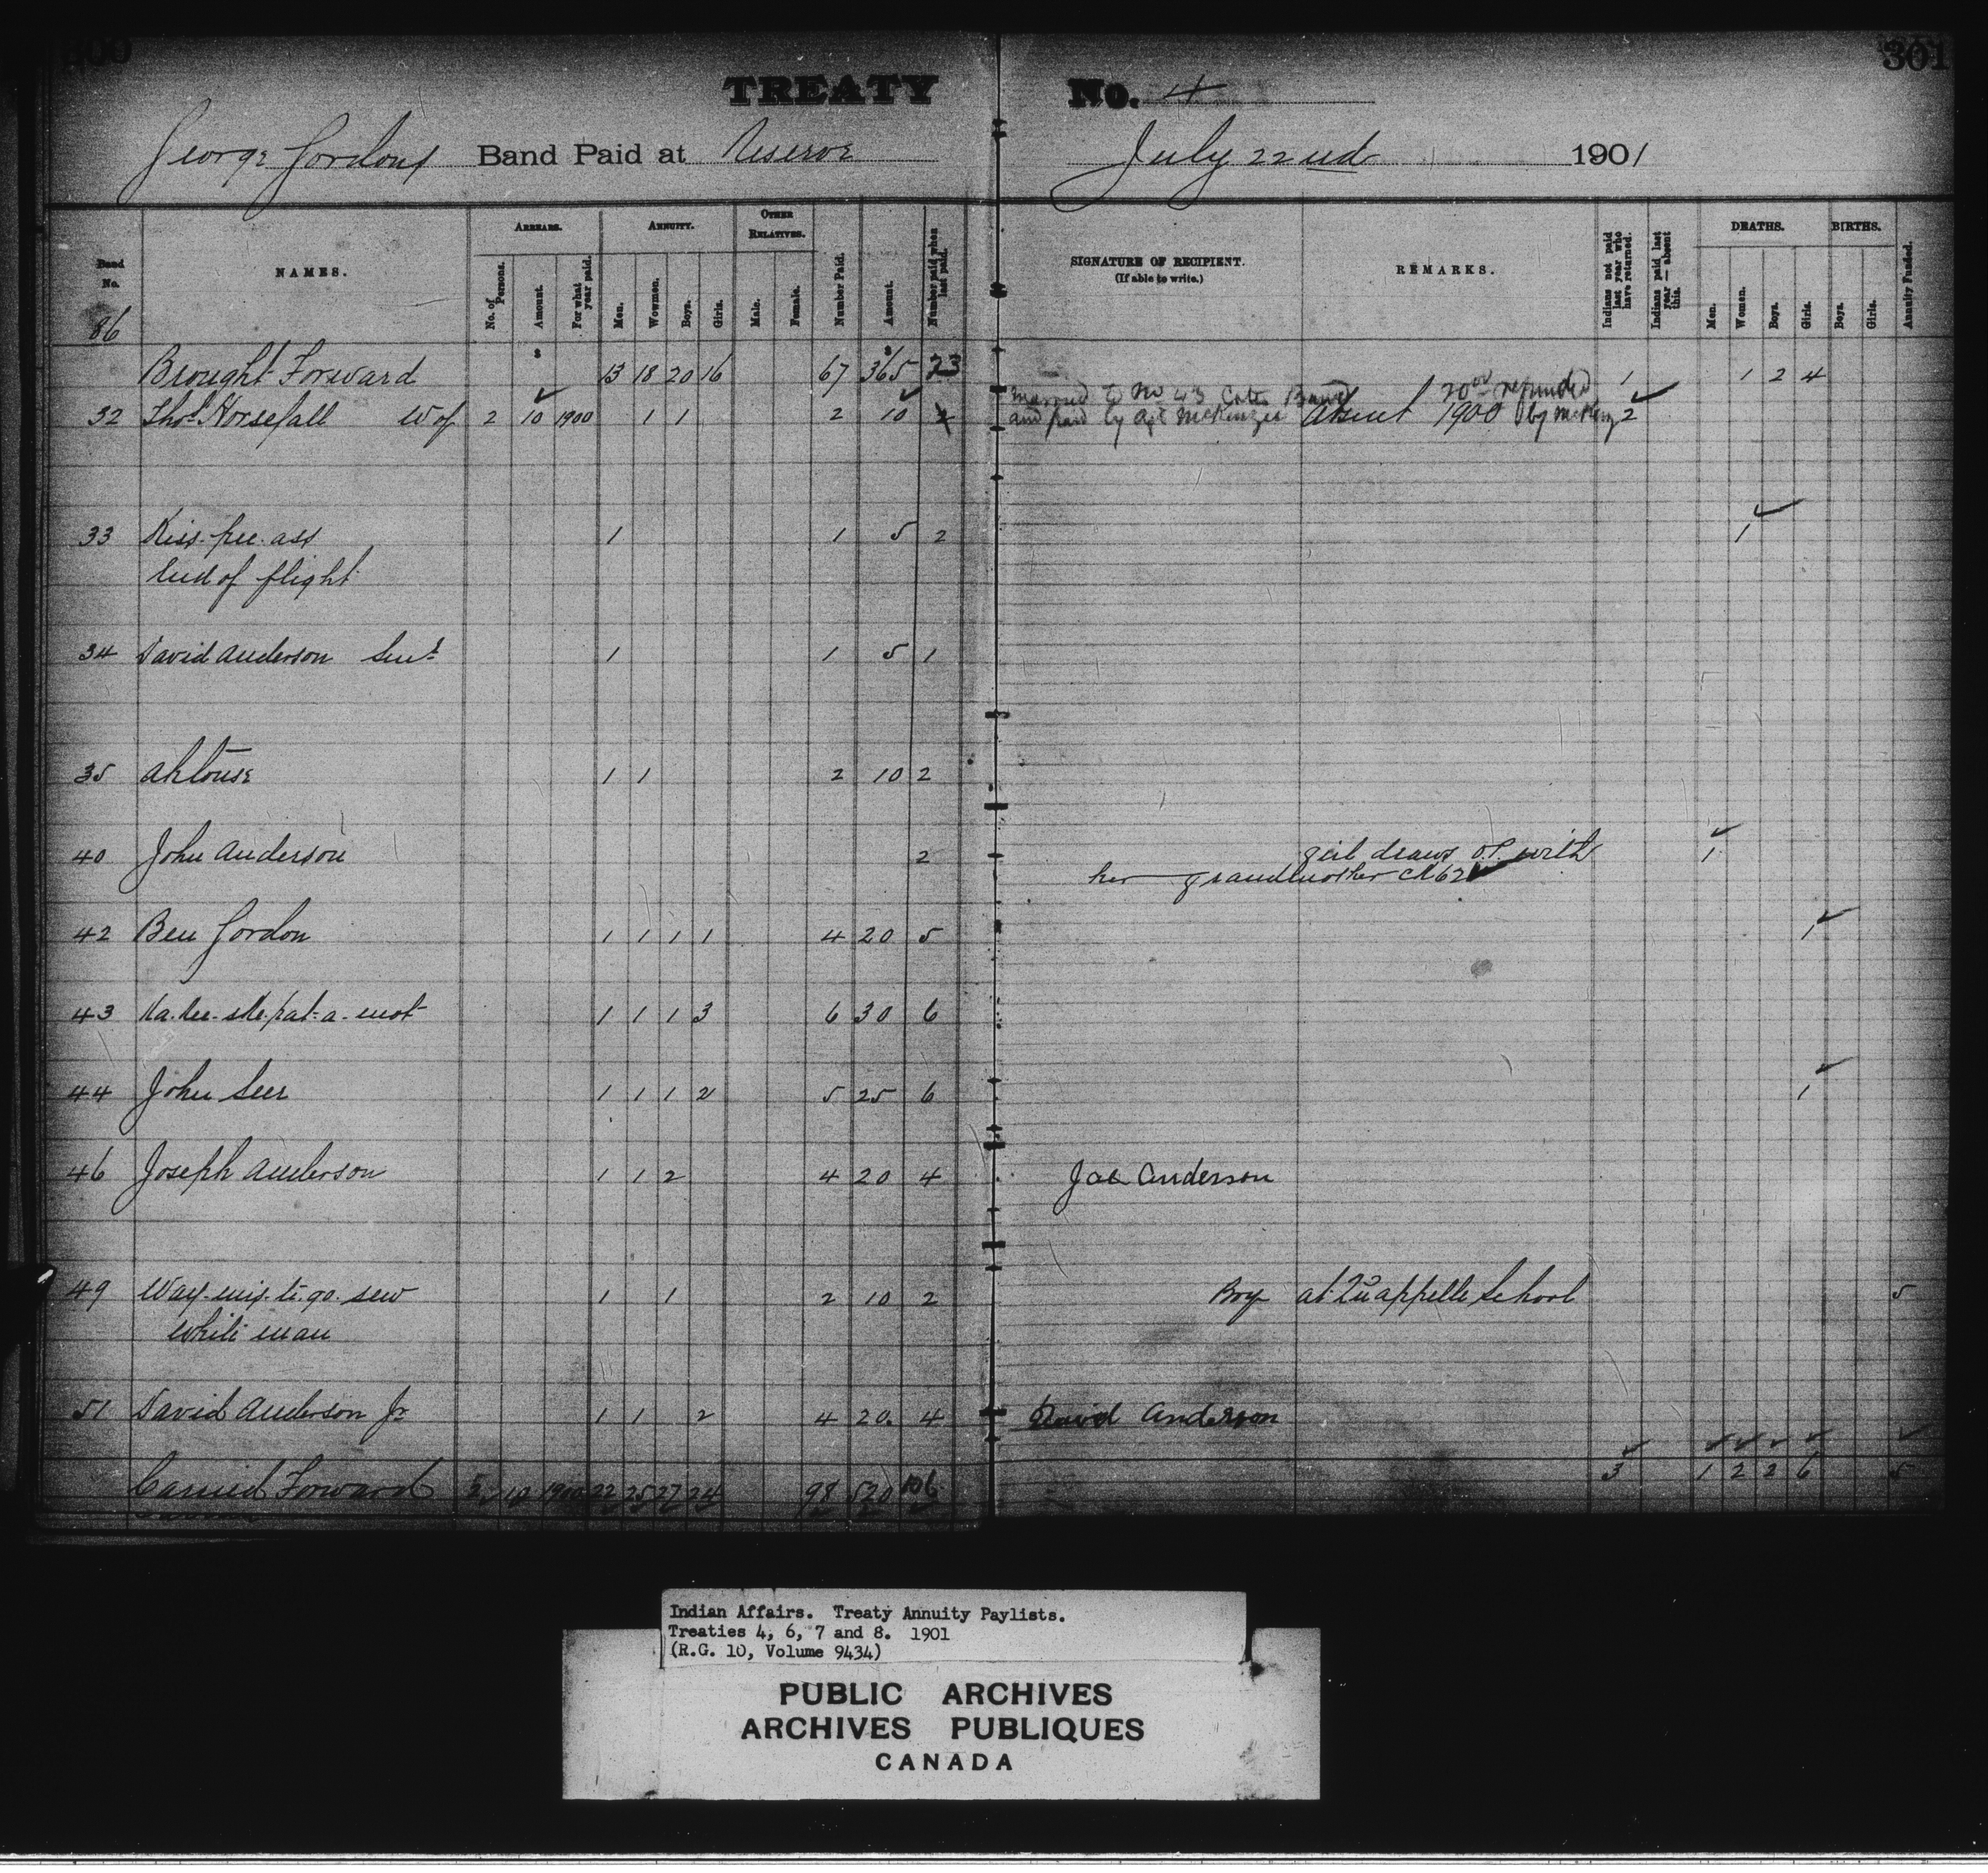 300
301
TREATY No. 4
George Gordons Band Paid at Reserve July 22nd 1901
Band No.
NAMES.
ARREARS.
No. of Persons.
Amount.
For what year paid.
ANNUITY.
Men.
Women.
Boys.
Girls.
OTHER RELATIVES.
Male.
Female.
Number Paid.
Amount.
Number paid when last paid.
SIGNATURE OF RECIPIENT.
(If able to write.)
REMARKS.
Indians not paid last year who have returned.
Indians paid last year — absent this.
DEATHS.
Men.
Women.
Boys.
Girls.
BIRTHS.
Boys.
Girls.
Annuity Funded.
86
$ $
Brought Forward 13 18 20 16 67 365 73 1 1 2 4
Married to No 43 Cotes Band 20 00 refunded
32 Thos. Horsefall W of 2 10 1900 1 1 2 10 2 and paid by Agt McKenzie Absent 1900 by McKenz 2
33 Kiss-pee-ass 1 1 5 2 1
End of flight
34 David Anderson Senr 1 1 5 1
35 Ahtouse 1 1 2 10 2
40 John Anderson 2 girl draws O.P. with 1
her grandmother CK 62
42 Ben Gordon 1 1 1 1 4 20 5 1
43 Ka-kee-ske-pat-a-mot 1 1 1 3 6 30 6
44 John Seer 1 1 1 2 5 25 6 1
46 Joseph Anderson 1 1 2 4 20 4 Joe Anderson
49 Way-mis-ti-go-sew 1 1 2 10 2 Boy at Qu'appelle School 5
White man
51 David Anderson Jr 1 1 2 4 20 4 David Anderson
Carried Forward 2 10 1900 22 25 27 24 98 520 106 3 1 2 2 6 5
Indian Affairs. Treaty Annuity Paylists.
Treaties 4, 6, 7 and 8. 1901
(R.G. 10, Volume 9434)
PUBLIC ARCHIVES
ARCHIVES PUBLIQUES
CANADA